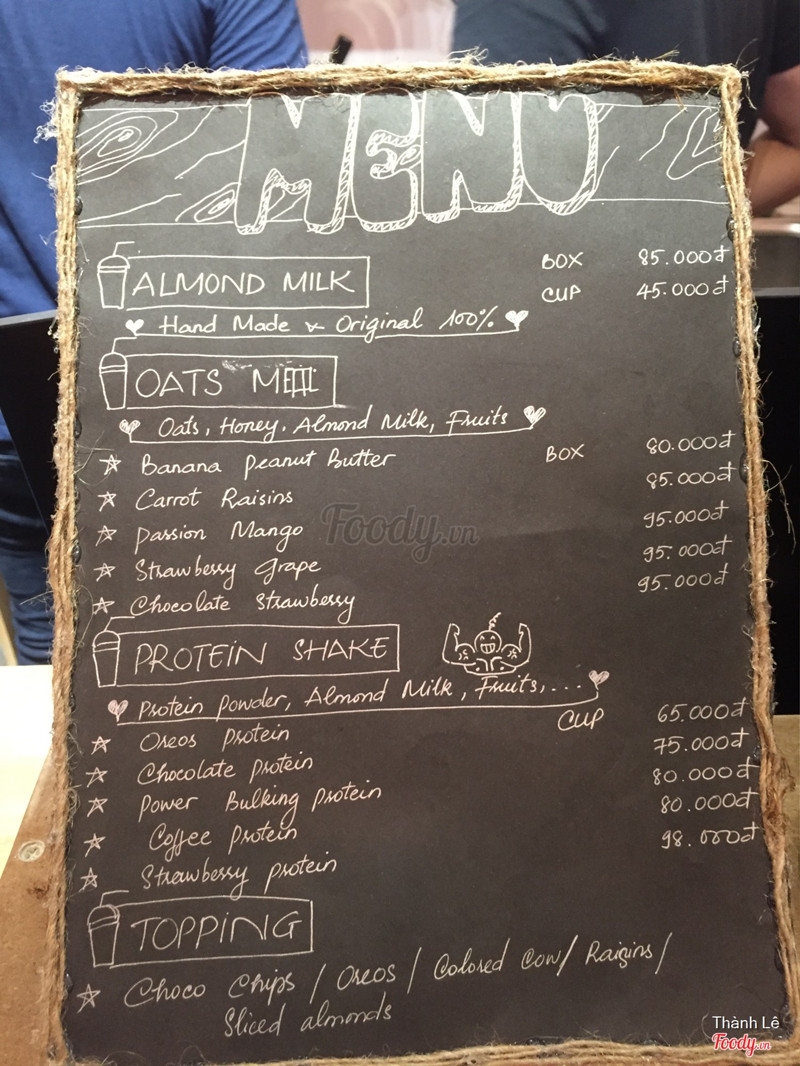 MENU
ALMOND MILK BOX 85.000đ
CUP 45.000đ
Hand Made & Original 100%
OATS
Oats, Honey, Almond Milk, Fruits
Banana Peanut Butter BOX 80.000đ
Carrot Raisins 85.000đ
Passion Mango 95.000đ
Strawberry Grape 95.000đ
Chocolate Strawberry 95.000đ
PROTEIN SHAKE
Protein Powder, Almond Milk, Fruits, ...
Oreos Protein CUP 65.000đ
Chocolate Protein 75.000đ
Power Bulking Protein 80.000đ
Coffee Protein 80.000đ
Strawberry Protein 98.000đ
TOPPING
Choco Chips / Oreos / Colored Cow / Raizins /
Sliced almonds
Foody.vn
Thành Lê
Foody.vn